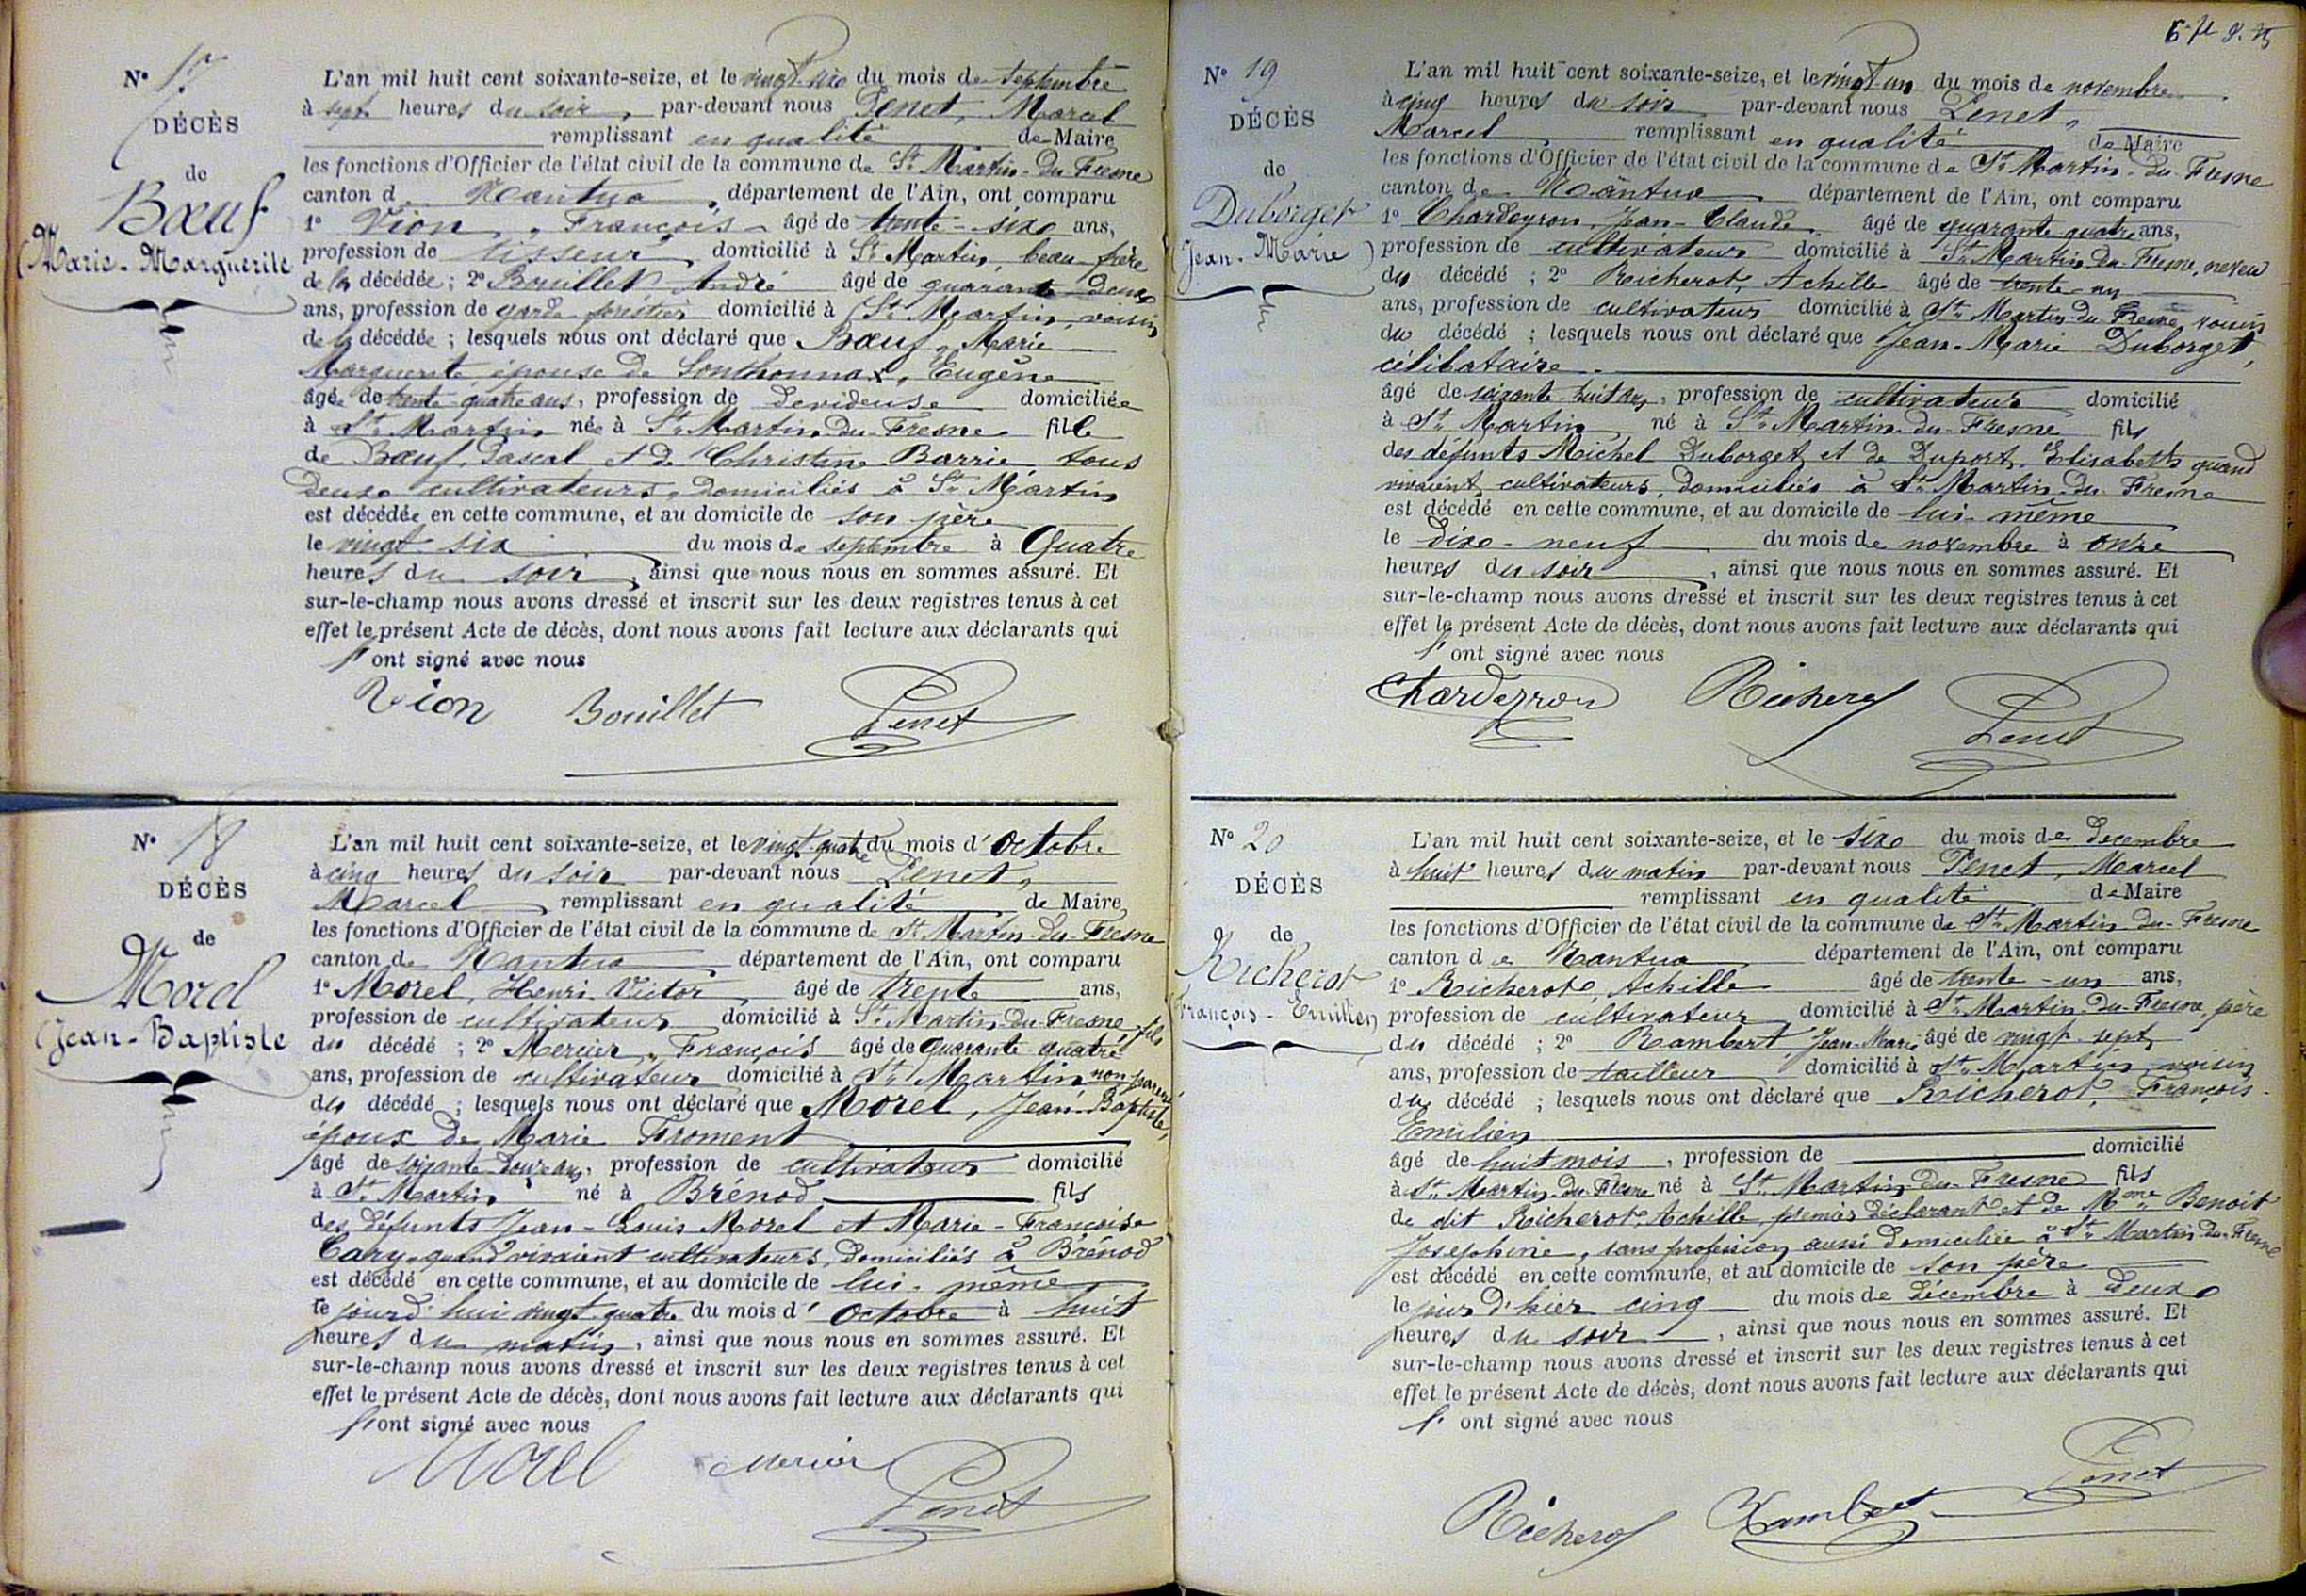 N° 17
DÉCÈS
de
Bœuf
(Marie-Marguerite
L'an mil huit cent soixante-seize, et le vingt-six du mois de septembre
à sept heures du soir, par-devant nous Penet, Marcel
remplissant en qualité de Maire
les fonctions d'Officier de l'état civil de la commune de St Martin-du-Fresne
canton de Nantua, département de l'Ain, ont comparu
1° Vion, François âgé de trente-six ans,
profession de tisseur, domicilié à St Martin, beau-frère
de la décédée; 2° Bouillet André âgé de quarante-deux
ans, profession de garde forestier domicilié à St Martin, voisin
de la décédée; lesquels nous ont déclaré que Bœuf, Marie
Marguerite, épouse de Sonthonnax, Eugène
âgée de trente-quatre ans, profession de dévideuse domiciliée
à St Martin née à St Martin-du-Fresne fille
de Bœuf, Pascal et de Christine Barrie, tous
deux cultivateurs, domiciliés à St Martin
est décédée en cette commune, et au domicile de son père
le vingt-six du mois de septembre à quatre
heures du soir, ainsi que nous nous en sommes assuré. Et
sur-le-champ nous avons dressé et inscrit sur les deux registres tenus à cet
effet le présent Acte de décès, dont nous avons fait lecture aux déclarants qui
l'ont signé avec nous
Vion Bouillet Penet
N° 18
DÉCÈS
de
Morel
(Jean-Baptiste
L'an mil huit cent soixante-seize, et le vingt-quatre du mois d'octobre
à cinq heures du soir par-devant nous Penet,
Marcel remplissant en qualité de Maire
les fonctions d'Officier de l'état civil de la commune de St Martin-du-Fresne
canton de Nantua département de l'Ain, ont comparu
1° Morel, Henri Victor, âgé de trente ans,
profession de cultivateur domicilié à St Martin-du-Fresne, fils
du décédé; 2° Mercier, François âgé de quarante-quatre
ans, profession de cultivateur domicilié à St Martin non parent
du décédé; lesquels nous ont déclaré que Morel, Jean-Baptiste,
époux de Marie Froment
âgé de soixante-douze ans, profession de cultivateur domicilié
à St Martin né à Brénod fils
des défunts Jean-Louis Morel et Marie-Françoise
Cary, quand vivaient cultivateurs, domiciliés à Brénod
est décédé en cette commune, et au domicile de lui-même
le jourd'hui vingt-quatre du mois d'octobre à huit
heures du matin, ainsi que nous nous en sommes assuré. Et
sur-le-champ nous avons dressé et inscrit sur les deux registres tenus à cet
effet le présent Acte de décès, dont nous avons fait lecture aux déclarants qui
l'ont signé avec nous
Morel Mercier Penet
N° 19
DÉCÈS
de
Duborget
(Jean-Marie)
L'an mil huit cent soixante-seize, et le vingt-un du mois de novembre
à cinq heures du soir par-devant nous Penet,
Marcel remplissant en qualité de Maire
les fonctions d'Officier de l'état civil de la commune de St Martin-du-Fresne
canton de Nantua département de l'Ain, ont comparu
1° Chardeyron, Jean-Claude âgé de quarante-quatre ans,
profession de cultivateur domicilié à St Martin-du-Fresne, neveu
du décédé; 2° Richerot, Achille âgé de trente-un
ans, profession de cultivateur domicilié à St Martin-du-Fresne, voisin
du décédé; lesquels nous ont déclaré que Jean-Marie Duborget,
célibataire
âgé de soixante-huit ans, profession de cultivateur domicilié
à St Martin né à St Martin-du-Fresne fils
des défunts Michel Duborget et de Duport, Elisabeth quand
vivaient, cultivateurs, domiciliés à St Martin-du-Fresne
est décédé en cette commune, et au domicile de lui-même
le dix-neuf du mois de novembre à onze
heures du soir, ainsi que nous nous en sommes assuré. Et
sur-le-champ nous avons dressé et inscrit sur les deux registres tenus à cet
effet le présent Acte de décès, dont nous avons fait lecture aux déclarants qui
l'ont signé avec nous
Chardeyron Richerot Penet
N° 20
DÉCÈS
de
Richerot
(François-Emilien)
L'an mil huit cent soixante-seize, et le six du mois de décembre
à huit heures du matin par-devant nous Penet, Marcel
remplissant en qualité de Maire
les fonctions d'Officier de l'état civil de la commune de St Martin-du-Fresne
canton de Nantua département de l'Ain, ont comparu
1° Richerot, Achille âgé de trente-un ans,
profession de cultivateur domicilié à St Martin-du-Fresne, père
du décédé; 2° Rambert, Jean-Marie âgé de vingt-sept
ans, profession de tailleur domicilié à St Martin, voisin
du décédé; lesquels nous ont déclaré que Richerot, François-
Emilien
âgé de huit mois, profession de domicilié
à St Martin-du-Fresne né à St Martin-du-Fresne fils
de dit Richerot, Achille, premier déclarant et de Mme Benoit
Josephine, sans profession aussi domiciliée à St Martin-du-Fresne
est décédé en cette commune, et au domicile de son père
le jour d'hier cinq du mois de décembre à deux
heures du soir, ainsi que nous nous en sommes assuré. Et
sur-le-champ nous avons dressé et inscrit sur les deux registres tenus à cet
effet le présent Acte de décès, dont nous avons fait lecture aux déclarants qui
l'ont signé avec nous
Richerot Rambert Penet